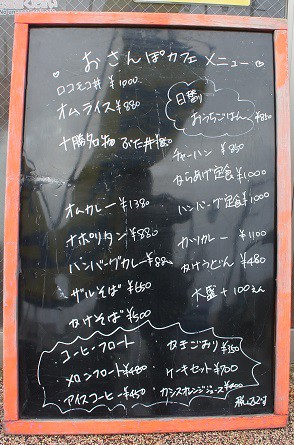 おさんぽカフェメニュー
ロコモコ丼 ¥1000
オムライス ¥880
十勝名物 ぶた丼
オムカレー ¥1380
ナポリタン ¥880
ハンバーグカレー
ザルそば ¥650
かけそば ¥500
日替り
おうちごはん ¥850
チャーハン ¥850
からあげ定食 ¥1000
ハンバーグ定食 ¥1000
カツカレー ¥1100
かけうどん ¥480
大盛 +100えん
コーヒーフロート
メロンフロート ¥480
アイスコーヒー ¥450
かきごおり ¥350
ケーキセット ¥700
カシスオレンジジュース ¥400